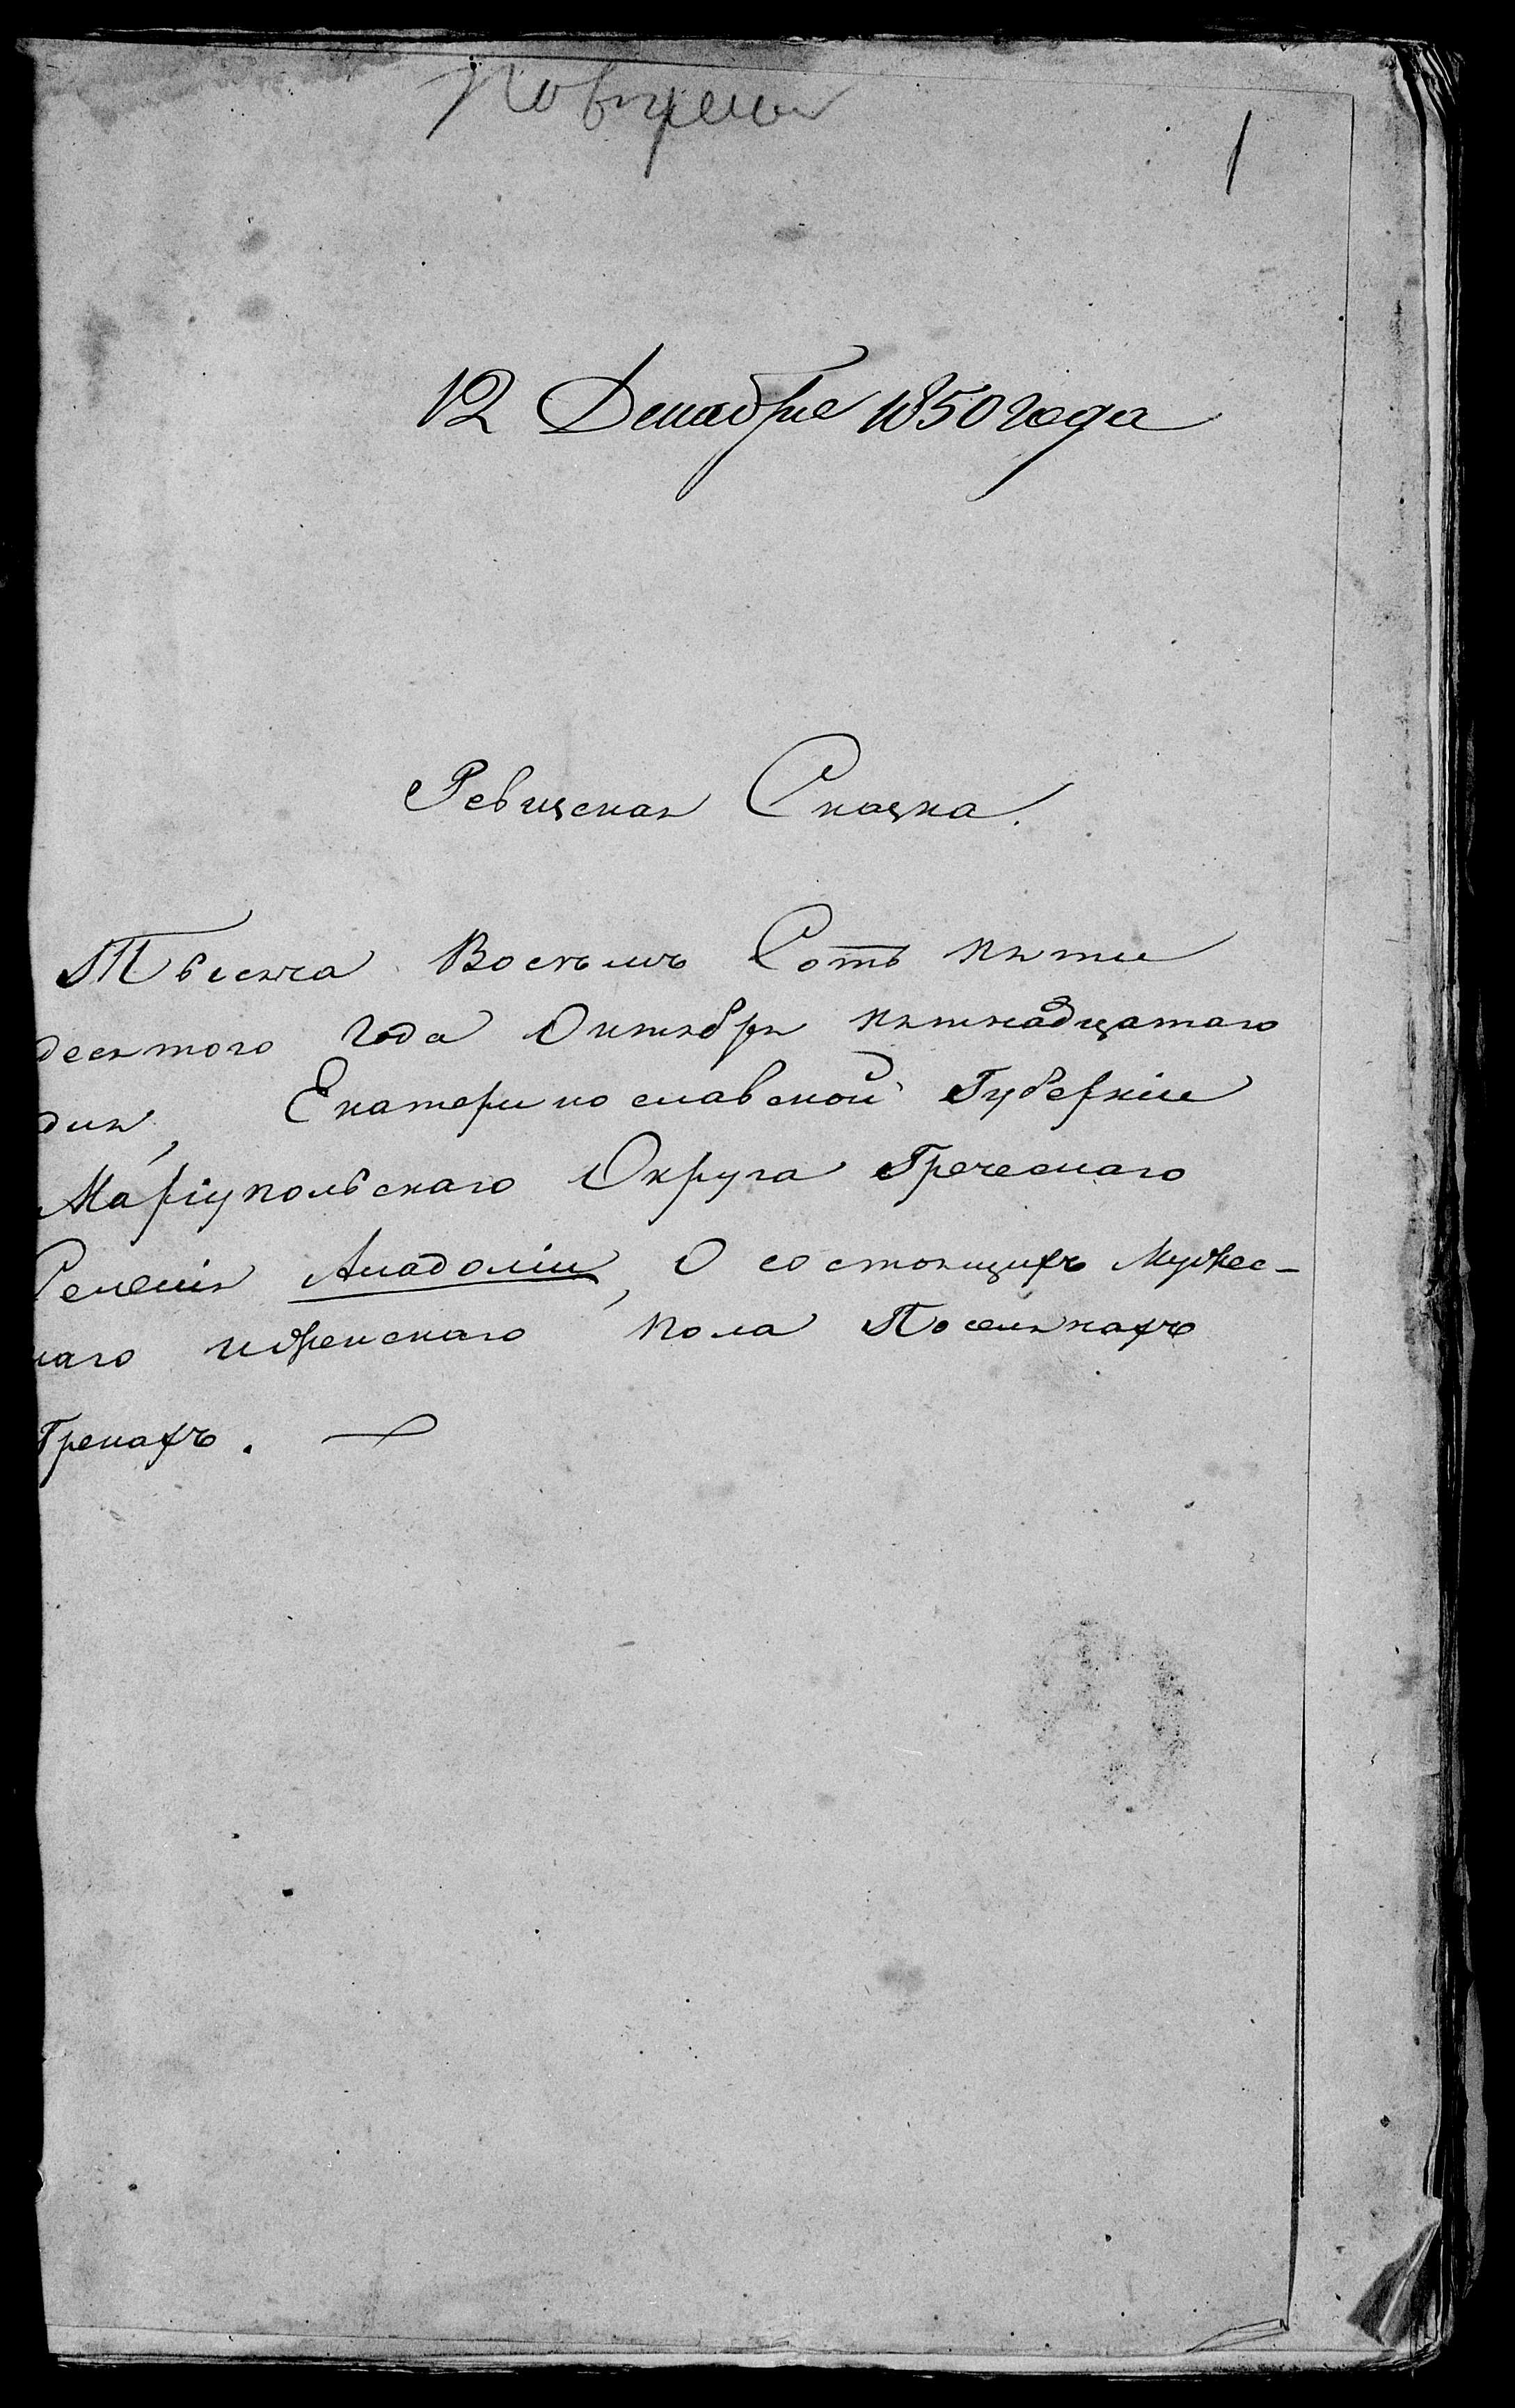 1
12 Декабря 1850 года
Ревизская Сказка.
Тысяча Восемъ Сотъ пяти
десятого года Октября пятнадцатаго
дня, Екатеринославской Губерніи
Маріупольскаго Округа Греческаго
Селенія Анадоліи, О состоящихъ Мужес-
каго и женскаго пола Поселянахъ
Грекахъ.